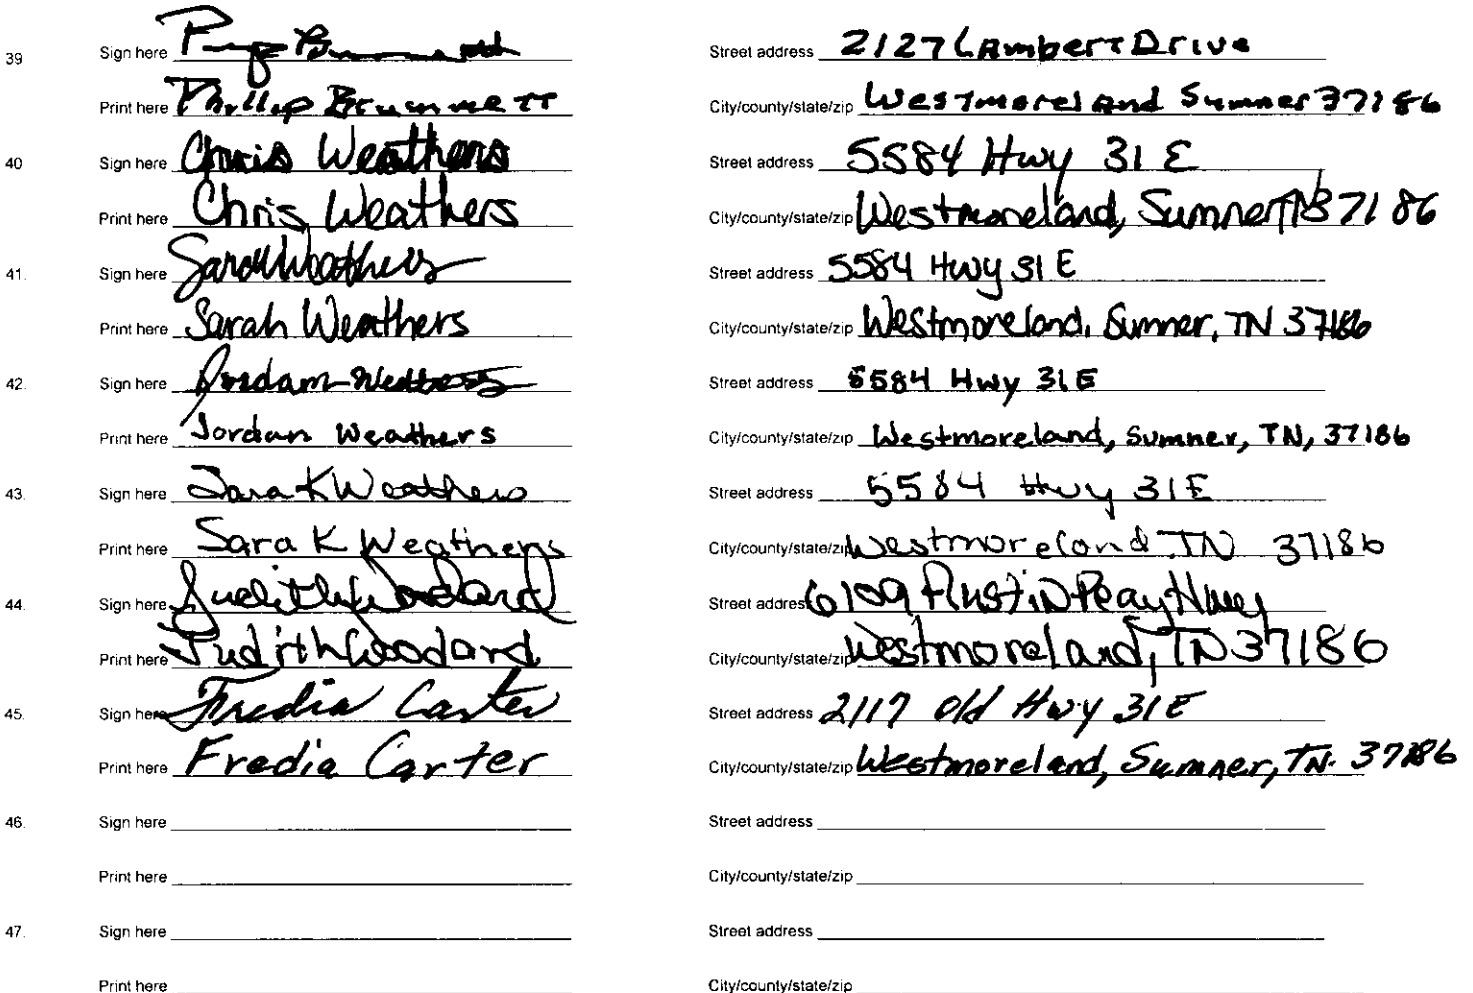 39 Sign here Street address 2127 Lambert Drive
Print here Phillip Brummett City/county/state/zip Westmoreland Sumner 37186
40 Sign here Chris Weathers Street address 5584 Hwy 31 E
Print here Chris Weathers City/county/state/zip Westmoreland, Sumner TN 37186
41. Sign here Sarah Weathers Street address 5584 Hwy 31 E
Print here Sarah Weathers City/county/state/zip Westmoreland, Sumner, TN 37186
42. Sign here Jordan Weathers Street address 5584 Hwy 31E
Print here Jordan Weathers City/county/state/zip Westmoreland, Sumner, TN, 37186
43. Sign here Sara K Weathers Street address 5584 Hwy 31E
Print here Sara K Weathers City/county/state/zip Westmoreland TN 37186
44. Sign here Judith Woodard Street address 6109 Austin Peay Hwy
Print here Judith Woodard City/county/state/zip Westmoreland, TN 37186
45. Sign here Fredia Carter Street address 2117 Old Hwy 31E
Print here Fredia Carter City/county/state/zip Westmoreland, Sumner, TN. 37186
46. Sign here Street address
Print here City/county/state/zip
47. Sign here Street address
Print here City/county/state/zip